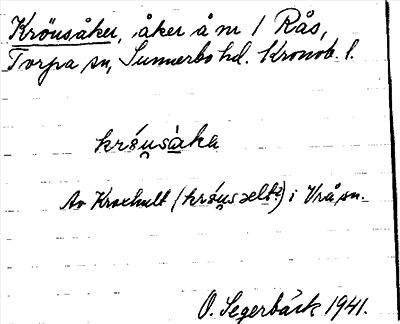 Kröusåker, åker å nr 1 Rås,
Torpa sn, Sunnerbo hd. Kronob. l.
krǿu̯såka
Av Kroxhult (krǿu̯səlt) i Vrå sn.
O. Segerbäck 1941.